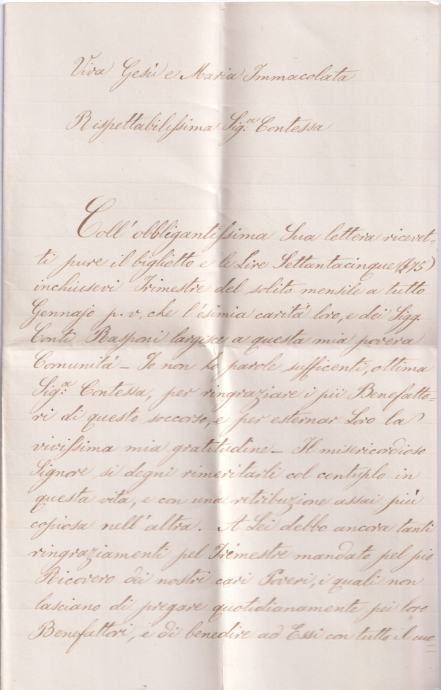 Viva Gesù e Maria Immacolata
Rispettabilissima Sig.ra Contessa
Coll' obbligantissima Sua lettera ricevet-
ti pure il biglietto e le Lire Settantacinque (£75)
inchiusevi Trimestre del solito mensile a tutto
Gennajo p. v., che l'esimia carità loro, e dei Sigg.
Conti Rasponi largisce a questa mia povera
Comunità – Io non ho parole sufficenti, ottima
Sig.ra Contessa, per ringraziare i pii Benefatto-
ri di questo soccorso, e per esternar Loro la
vivissima mia gratitudine – Il misericordioso
Signore si degni rimeritarli col centuplo in
questa vita, e con una retribuzione assai più
copiosa nell' altra. A Lei debbo ancora tanti
ringraziamenti pel Trimestre mandato pel pio
Ricovero dei nostri cari Poveri, i quali non
lasciano di pregare quotidianamente pei loro
Benefattori, e di benedire ad Essi con tutto il cuo-